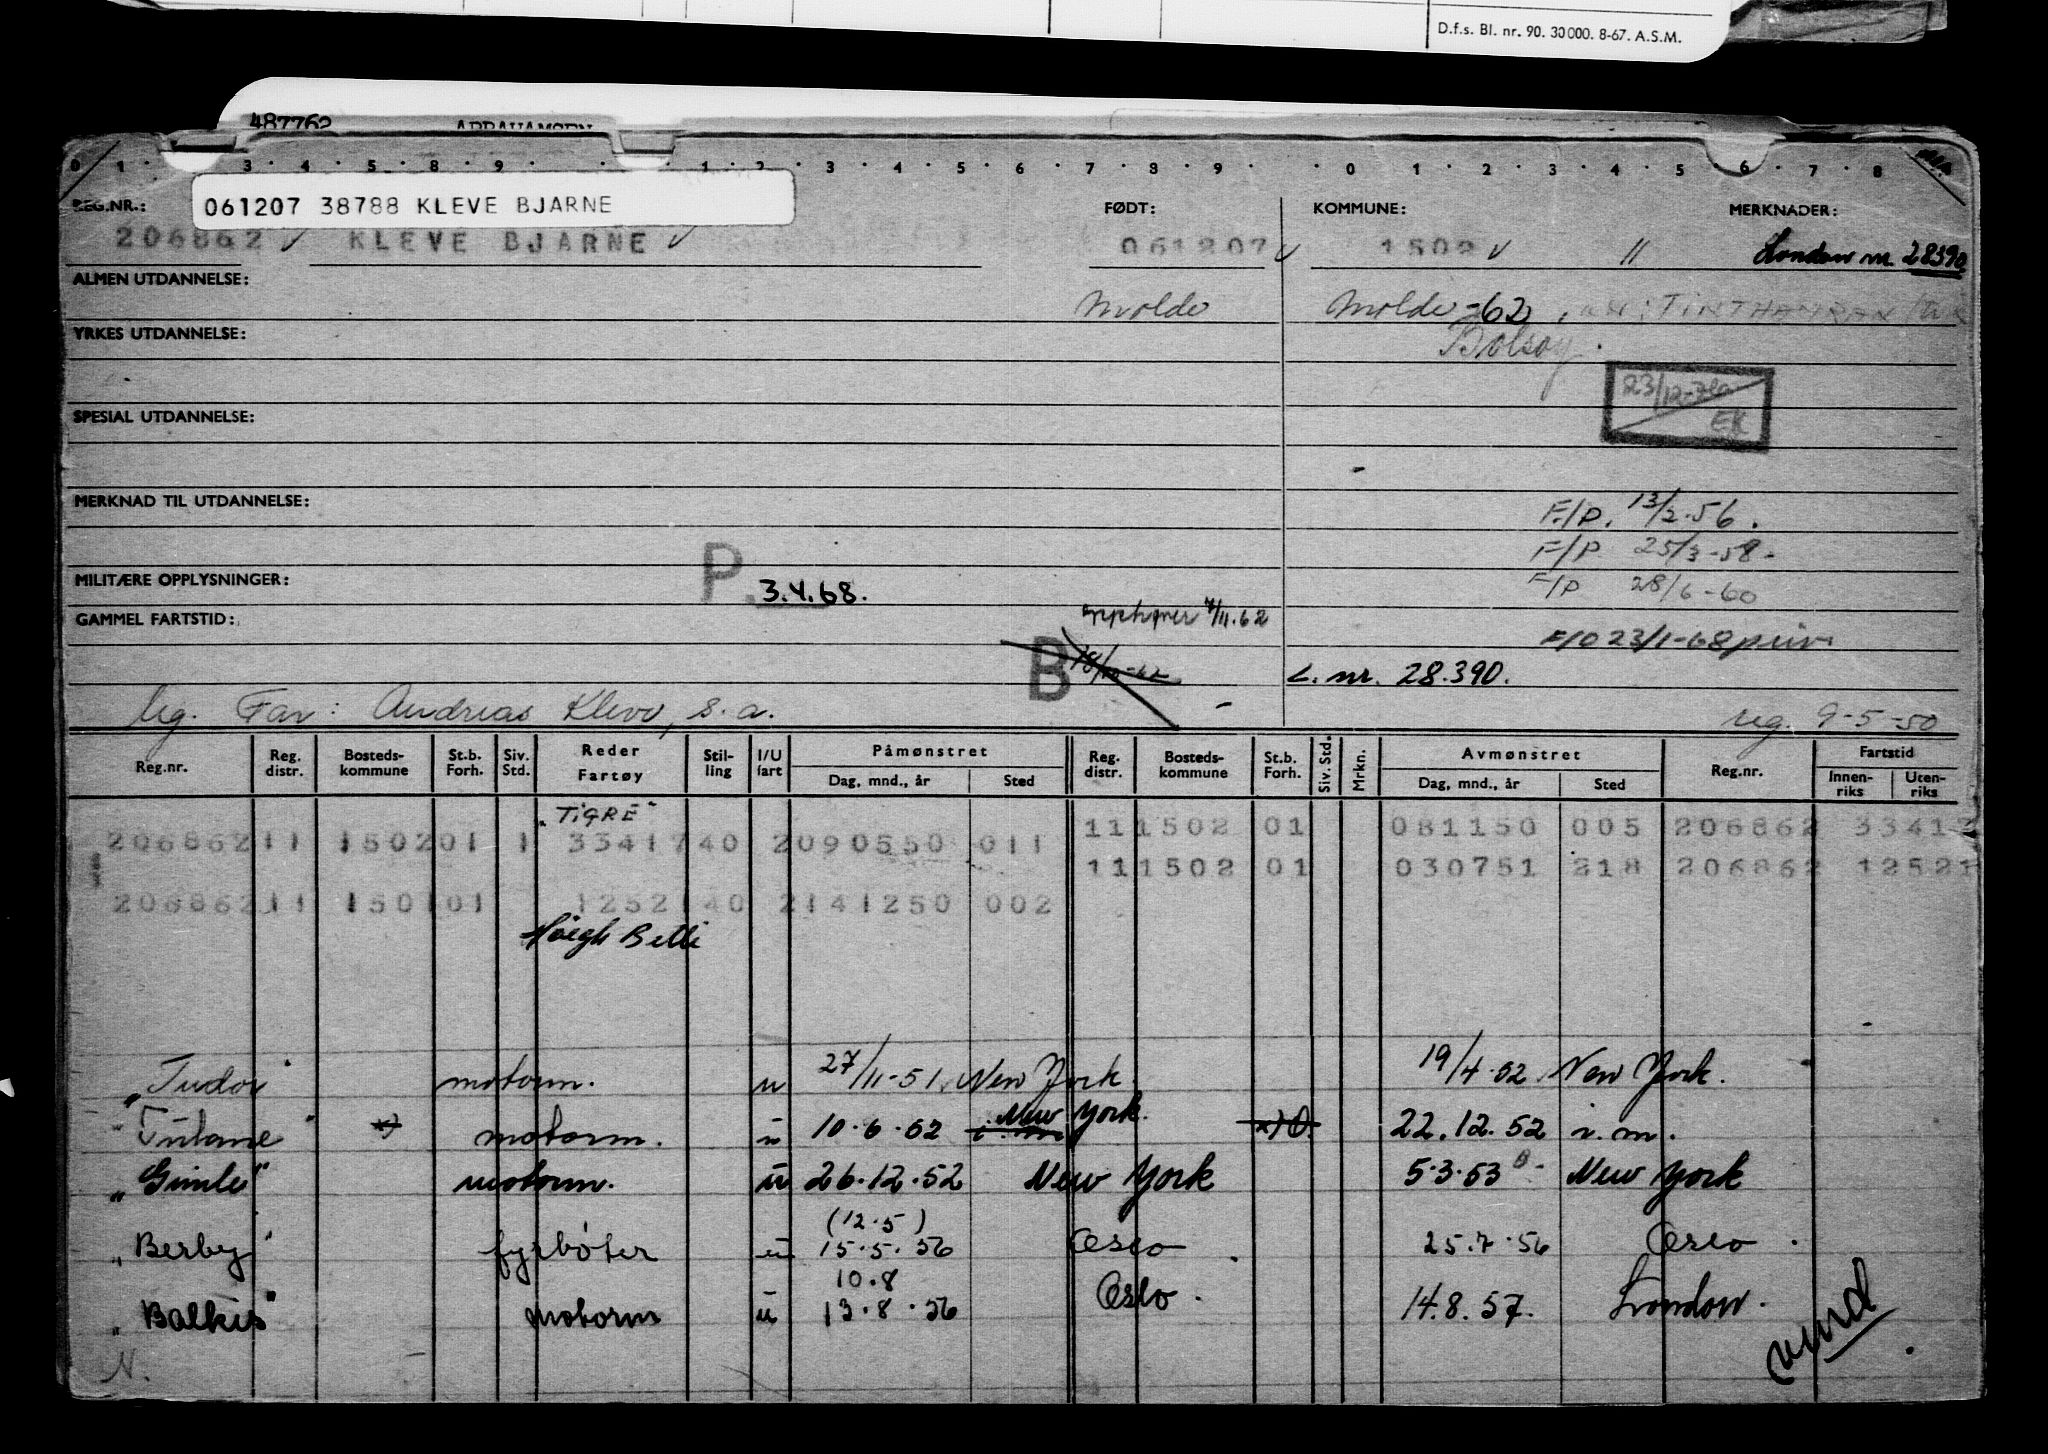 D.f.s. Bl. nr. 90. 30000. 8-67. A.S.M.
487762 ABRAHAMSEN
0 1 3 4 5 8 9 1 2 3 4 5 6 7 8 9 0 1 2 3 4 5 6 7 8
REG.NR.: 061207 38788 KLEVE BJARNE FØDT: KOMMUNE: MERKNADER:
206862 KLEVE BJARNE 061207 1502 " London nr. 28390
ALMEN UTDANNELSE:
Molde Molde -62
YRKES UTDANNELSE: Bolsøy
23/12-70 EK
SPESIAL UTDANNELSE:
MERKNAD TIL UTDANNELSE: F/P. 13/2.56.
F/P 25/3-58-
MILITÆRE OPPLYSNINGER: P. 3.4.68. F/P 28/6-60
GAMMEL FARTSTID: opphører 7/11.62
F/O 23/1-68 priv
B 18/10-62 L. nr. 28.390.
leg. Far: Andreas Kleve, s.a. reg. 9-5-50
Reg.nr. Reg. distr. Bosteds-kommune St.b. Forh. Siv. Std. Reder Fartøy Stil-ling I/U fart Påmønstret Dag, mnd., år Sted Reg. distr. Bosteds-kommune St.b. Forh. Siv. Std. Mrkn. Avmønstret Dag, mnd., år Sted Reg.nr. Fartstid Innen-riks Uten-riks
"TIGRE"
206862 11 1502 01 1 33417 40 2 090550 011 11 1502 01 081150 005 206862 33417
11 1502 01 030751 218 206862 12521
206862 11 1501 01 12521 40 2 141250 002
Höegh Belle
"Tudor" motorm. u 27/11-51. New York. 19/4.52. New York.
"Tulane" x) motorm. u 10.6.52 New York. x) O. 22.12.52 i.m.
"Gimle" motorm. u 26.12.52 New York 5.3.53 New York
(12.5)
"Berby" fyrbøter u 15.5.56 Oslo 25.7.56 Oslo.
10.8
"Balkis" motorm u 13.8.56 Oslo. 14.8.57. London.
N. vend